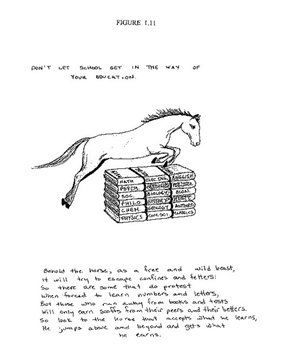 FIGURE 1.11
DON'T LET SCHOOL GET IN THE WAY OF
YOUR EDUCATION.
MATH ENGLISH
PSYCH
SOC. BIOLOGY
PHILO
CHEM
PHYSICS CLASSICS
Behold the horse, as a free and wild beast,
It will try to escape confines and fetters.
So there are some that do protest
When forced to learn numbers and letters,
But those who run away from books and tests
Will only earn scoffs from their peers and their betters.
So look to the horse who accepts what he learns,
He jumps above and beyond and gets what
he earns.